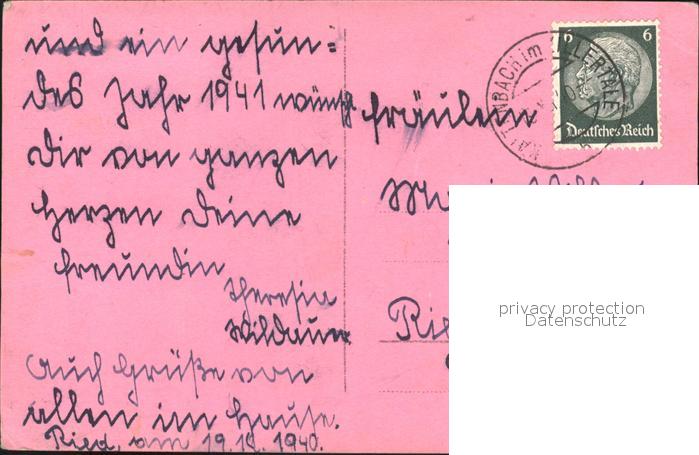 und ein gesun=
des Jahr 1941 wünscht
Dir von ganzen
Herzen Deine
Freundin
Theresia
Wildauer
Auch Grüße von
allen im Hause.
Ried, am 19.12.1940.
Fräulein
Ried
6 6
Deutsches Reich
KALTENBACH im ZILLERTALE
privacy protection
Datenschutz